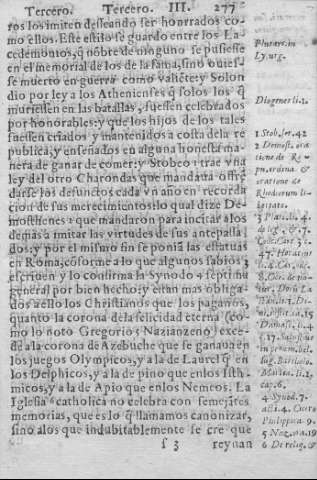 Tercero. Tercero. III. 277
ros los imiten desseando ser honrrados co
mo ellos. Este estilo se guardo entre los La-
cedemonios, q̃ nõbre de ninguno se pusiesse
en el memorial de los de la fama, sino ouies-
se muerto en guerra como valiẽte: y Solon
dio por ley a los Athenienses q̃ solos los q̃
muriessen en las batallas, fuessen celebrados
por honorables: y que los hijos de los tales
fuessen criados y mantenidos a costa dela re
publica, y enseñados en alguna honesta ma-
nera de ganar de comer: y Stobeo 1 trae vna
ley del otro Charondas que mandaua offrẽ
darse los defunctos cada vn año en recorda
cion de sus merecimientos: lo qual dize De-
mosthenes 2 que mandaron para incitar a los
demas a imitar las virtudes de sus antepassa
dos: y por el mismo fin se poniã las estatuas
en Roma, cõforme a lo que algunos sabios 3
escriuen y lo confirma la Synodo 4 septima
general por bien hecho: y estan mas obliga-
dos a ello los Christianos que los paganos,
quanto la corona dela felicidad eterna (co-
mo lo noto Gregorio 5 Nazianzeno) exce-
de a la corona de Azebuche que se ganaua en
los juegos Olympicos, y a la de Laurel q̃ en
los Delphicos, y a la de pino que en los Isth-
micos, y a la de Apio que enlos Nemeos. La
Iglesia 6 catholica no celebra con semejãtes
memorias, que es lo q̃ llamamos canonizar,
sino a los que indubitablemente se cree que
s 3 reynan
Plutarc. in
Lycurg.
Diogenes li. 1.
1 Stob. ser. 42
2 Demost. ora
tione de
oratione
4 Synod. 7.
Philippica 9.
5 Naz. ora. 19
6 De relig. &